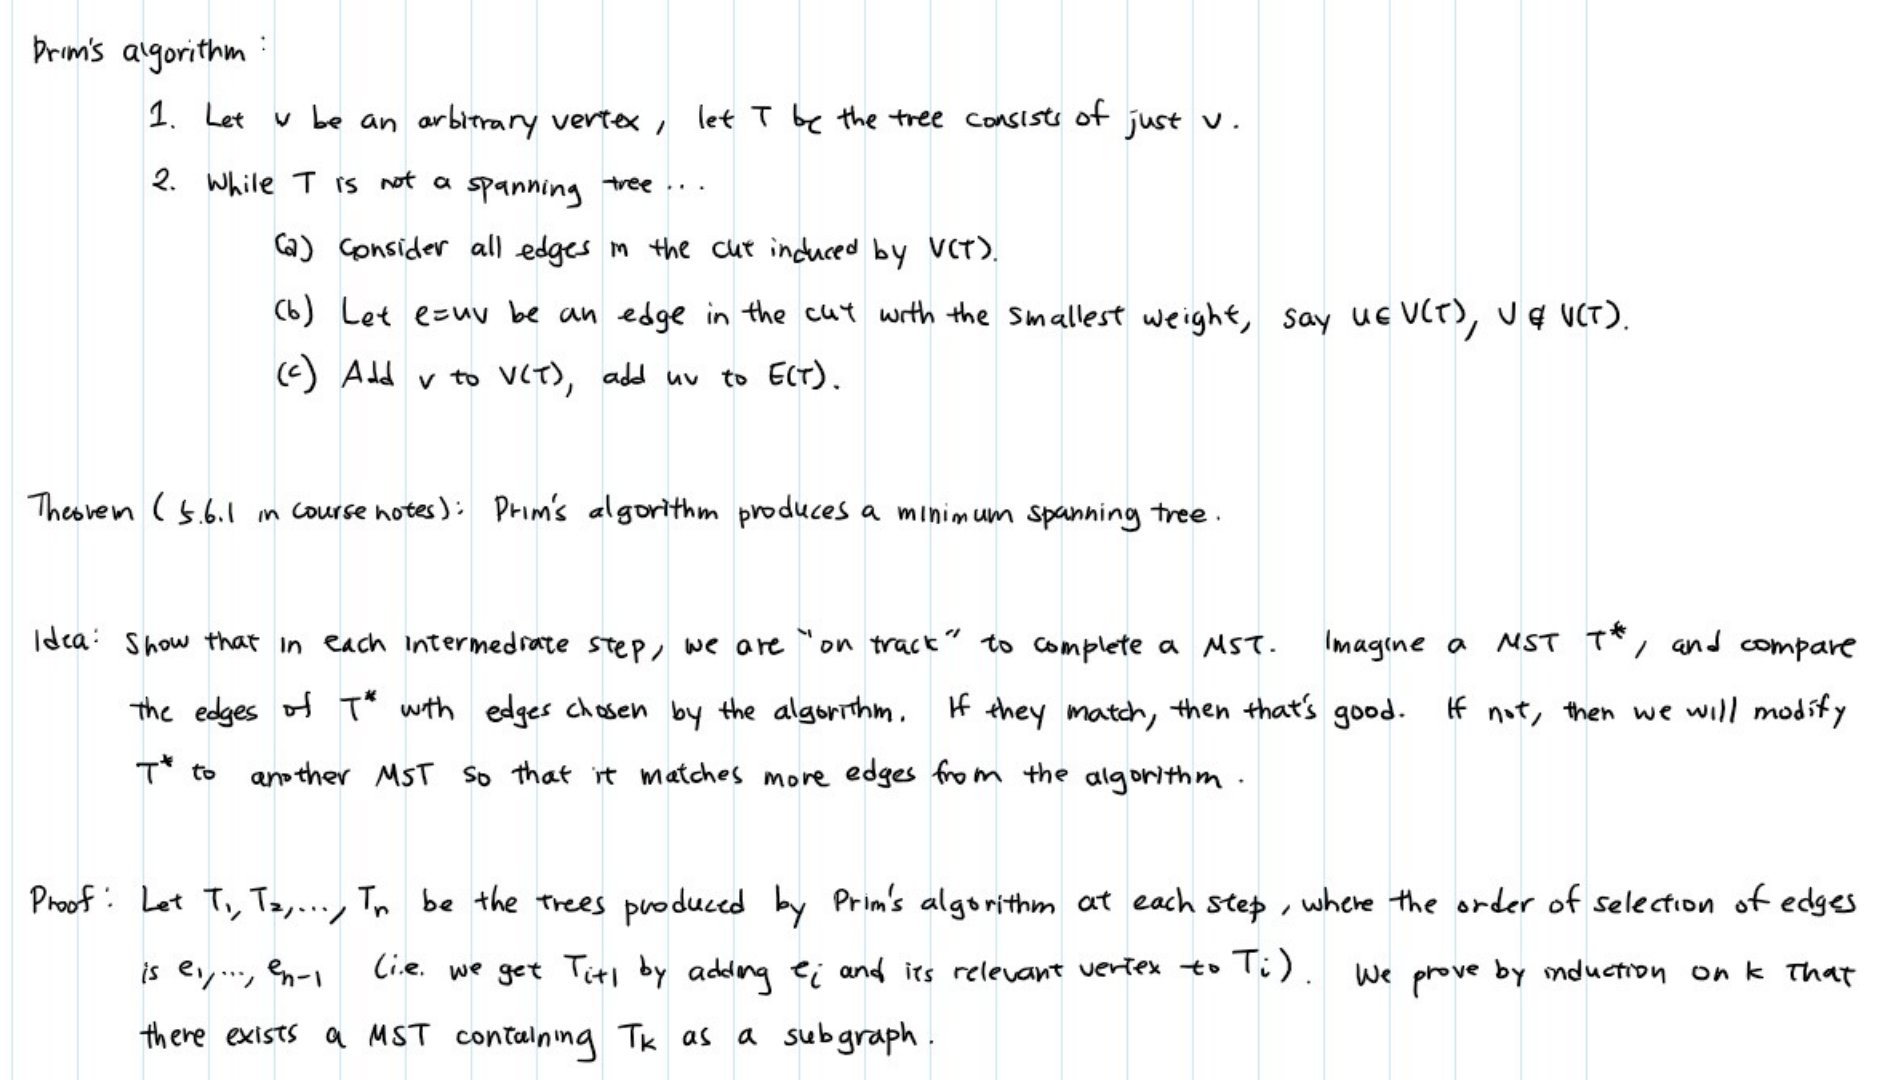 Prim's algorithm:
1. Let v be an arbitrary vertex, let T be the tree consists of just v.
2. While T is not a spanning tree...
(a) Consider all edges in the cut induced by V(T).
(b) Let e=uv be an edge in the cut with the smallest weight, say u∈V(T), v∉V(T).
(c) Add v to V(T), add uv to E(T).
Theorem (5.6.1 in course notes): Prim's algorithm produces a minimum spanning tree.
Idea: Show that in each intermediate step, we are "on track" to complete a MST. Imagine a MST T*, and compare
the edges of T* with edges chosen by the algorithm. If they match, then that's good. If not, then we will modify
T* to another MST so that it matches more edges from the algorithm.
Proof: Let T₁, T₂,..., Tₙ be the trees produced by Prim's algorithm at each step, where the order of selection of edges
is e₁,..., eₙ₋₁ (i.e. we get Tᵢ₊₁ by adding eᵢ and its relevant vertex to Tᵢ). We prove by induction on k that
there exists a MST containing Tₖ as a subgraph.